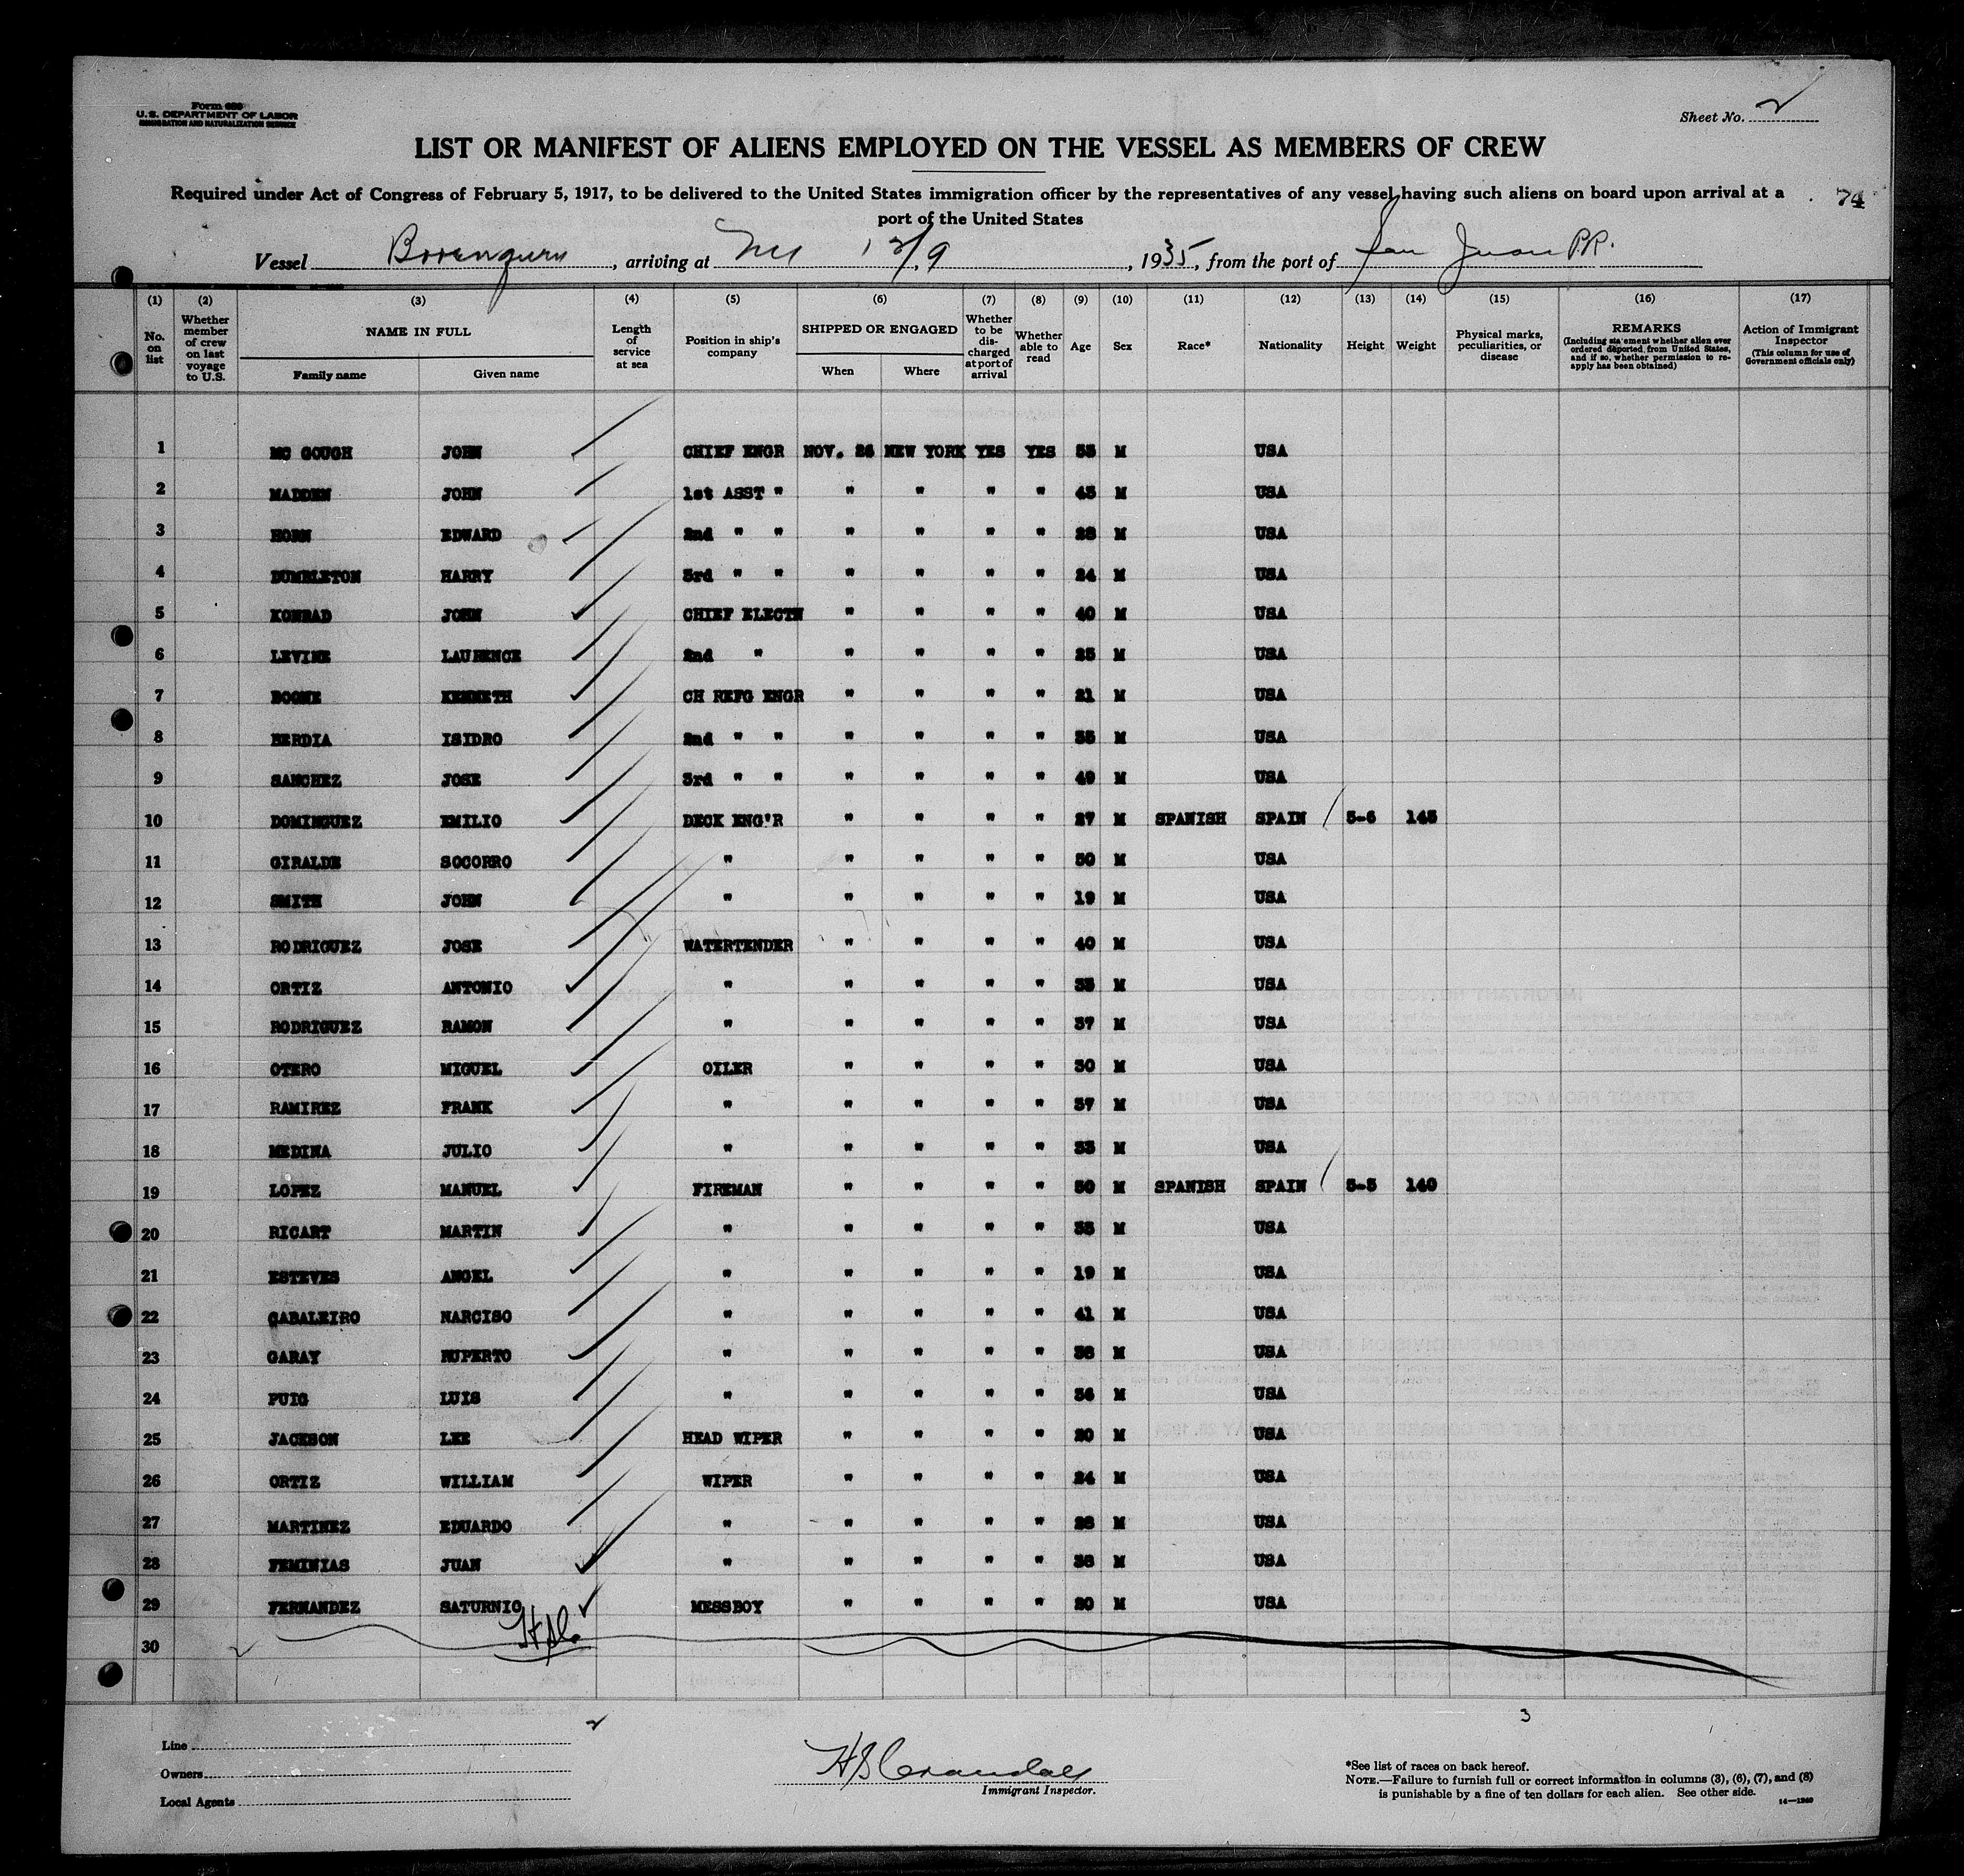 Form 680
U.S. DEPARTMENT OF LABOR
IMMIGRATION AND NATURALIZATION SERVICE
Sheet No. 2
LIST OR MANIFEST OF ALIENS EMPLOYED ON THE VESSEL AS MEMBERS OF CREW
Required under Act of Congress of February 5, 1917, to be delivered to the United States immigration officer by the representatives of any vessel having such aliens on board upon arrival at a
port of the United States
74
Vessel Borenquen, arriving at NY 12/9, 1935, from the port of San Juan P.R.
(1) (2) (3) (4) (5) (6) (7) (8) (9) (10) (11) (12) (13) (14) (15) (16) (17)
No. on list
Whether member of crew on last voyage to U.S.
NAME IN FULL
Family name Given name
Length of service at sea
Position in ship's company
SHIPPED OR ENGAGED
When Where
Whether to be discharged at port of arrival
Whether able to read
Age
Sex
Race*
Nationality
Height
Weight
Physical marks, peculiarities, or disease
REMARKS
(Including statement whether alien ever ordered deported from United States, and if so, whether permission to reapply has been obtained)
Action of Immigrant Inspector
(This column for use of Government officials only)
1 MC GOUGH JOHN CHIEF ENGR NOV. 26 NEW YORK YES YES 53 M USA
2 MADDEN JOHN 1st ASST " " " " " 43 M USA
3 HORN EDWARD 2nd " " " " " " 28 M USA
4 DUMBLETON HARRY 3rd " " " " " " 24 M USA
5 KONRAD JOHN CHIEF ELECTN " " " " 40 M USA
6 LEVINE LAURENCE 2nd " " " " " 25 M USA
7 BOONE KENNETH CH REFG ENGR " " " " 21 M USA
8 HERDIA ISIDRO 2nd " " " " " " 35 M USA
9 SANCHEZ JOSE 3rd " " " " " " 49 M USA
10 DOMINGUEZ EMILIO DECK ENG'R " " " " 27 M SPANISH SPAIN 5-6 145
11 GIRALDE SOCORRO " " " " " 50 M USA
12 SMITH JOHN " " " " " 19 M USA
13 RODRIGUEZ JOSE WATERTENDER " " " " 40 M USA
14 ORTIZ ANTONIO " " " " " 33 M USA
15 RODRIGUEZ RAMON " " " " " 37 M USA
16 OTERO MIGUEL OILER " " " " 30 M USA
17 RAMIREZ FRANK " " " " " 37 M USA
18 MEDINA JULIO " " " " " 33 M USA
19 LOPEZ MANUEL FIREMAN " " " " 30 M SPANISH SPAIN 5-5 140
20 RICART MARTIN " " " " " 35 M USA
21 ESTEVES ANGEL " " " " " 19 M USA
22 CABALEIRO NARCISO " " " " " 41 M USA
23 GARAY RUPERTO " " " " " 38 M USA
24 PUIG LUIS " " " " " 36 M USA
25 JACKSON LEE HEAD WIPER " " " " 20 M USA
26 ORTIZ WILLIAM WIPER " " " " 24 M USA
27 MARTINEZ EDUARDO " " " " " 28 M USA
28 FEMINIAS JUAN " " " " " 38 M USA
29 FERNANDEZ SATURNIO MESSBOY " " " " 20 M USA
30
2
3
Line
Owners
Local Agents
H S Crandall
Immigrant Inspector.
*See list of races on back hereof.
NOTE.—Failure to furnish full or correct information in columns (3), (6), (7), and (8)
is punishable by a fine of ten dollars for each alien. See other side.
14—1240